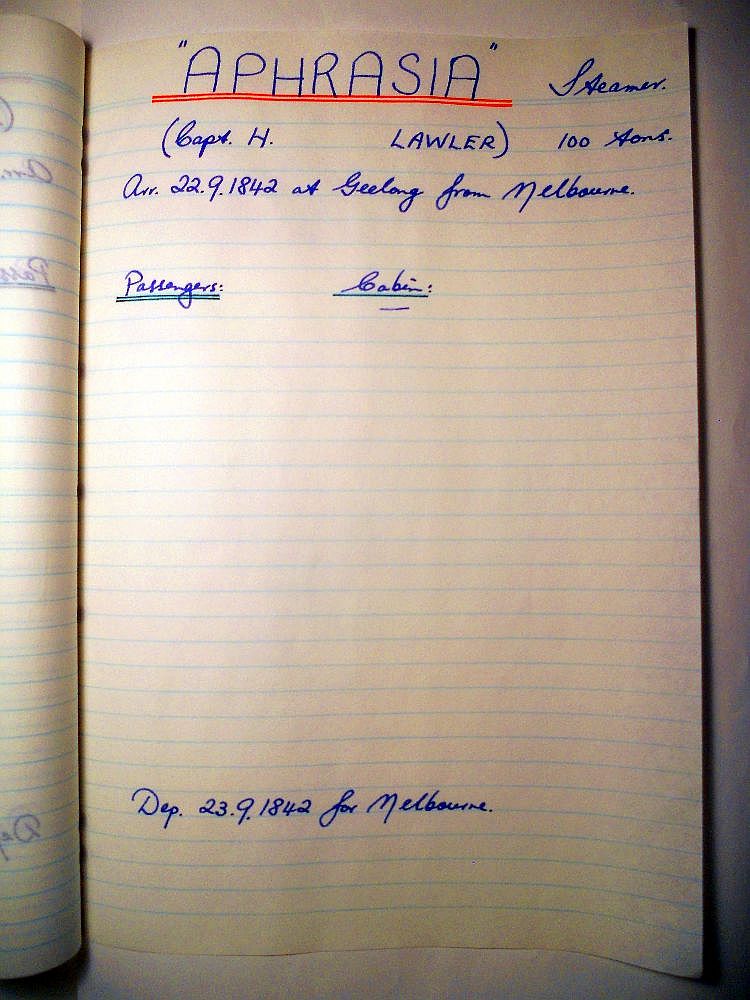 "APHRASIA" Steamer.
(Capt. H. LAWLER) 100 tons.
Arr. 22.9.1842 at Geelong from Melbourne.
Passengers: Cabin:
Dep. 23.9.1842 for Melbourne.